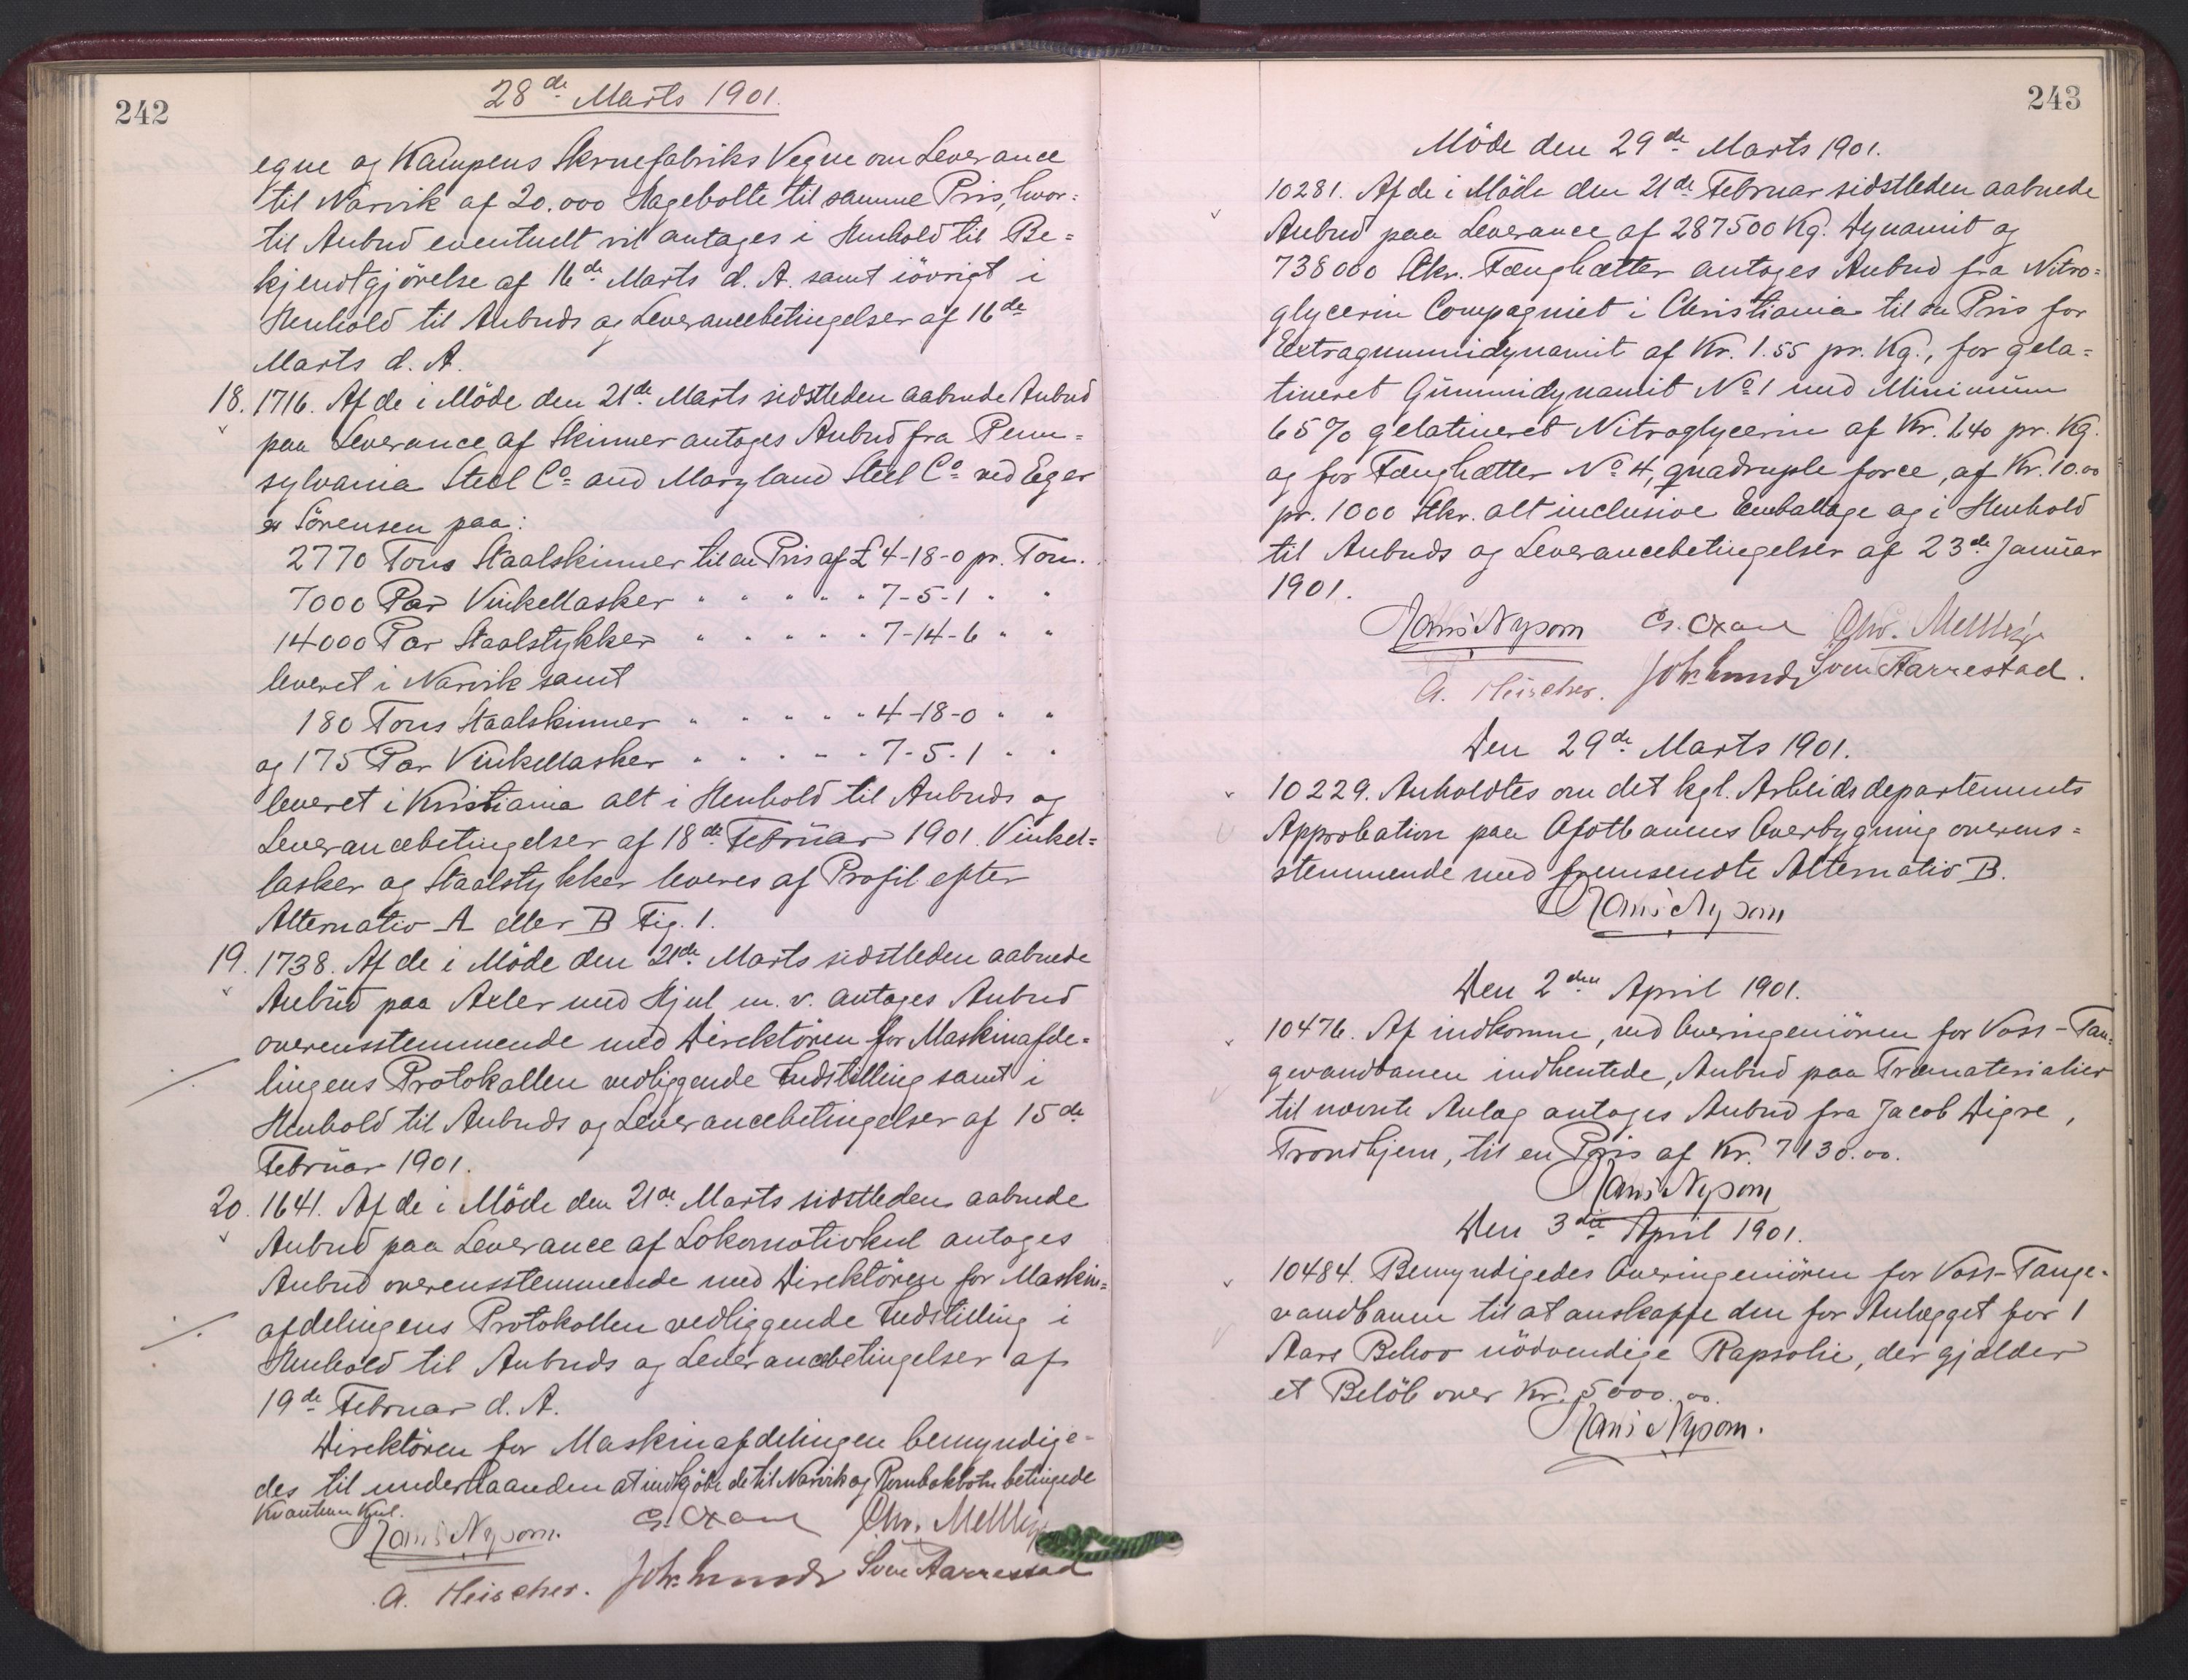 242
28de Marts 1901.
egne og Kampens Skruefabriks Vegne om Leverance
til Narvik af 20.000 Hagebolte til samme Pris, hvor=
til Anbud eventuelt vil antages i Henhold til Be=
kjendtgjörelse af 16de Marts d. A. samt iövrigt i
Henhold til Anbuds og Leverancebetingelser af 16de
Marts d. A.
18. 1716. Af de i Möde den 21de Marts sidstleden aabnede Anbud
paa Leverance af Skinner antages Anbud fra Penn=
sylvania Steel Co and Maryland Steel Co ved Eger
& Sörensen paa:
2770 Tons Staalskinner til en Pris af £ 4-18-0 pr. Ton.
7000 Par Vinkellasker " " " " " 7-5-1 " "
14000 Par Staalstykker " " " " " 7-14-6 " "
leveret i Narvik samt
180 Tons Staalskinner " " " " " 4-18-0 " "
og 175 Par Vinkellasker " " " " " 7-5-1 " "
leveret i Kristiania alt i Henhold til Anbuds og
Leverancebetingelser af 18de Februar 1901. Vinkel=
lasker og Staalstykker leveres af Profil efter
Alternativ A eller B Fig. 1.
19. 1738. Af de i Möde den 21de Marts sidstleden aabnede
Anbud paa Axler med Hjul m. v. antages Anbud
overensstemmende med Direktören for Maskinafde=
lingens Protokollen vedliggende Indstilling samt i
Henhold til Anbuds og Leverancebetingelser af 15de
Februar 1901.
20. 1641. Af de i Möde den 21de Marts sidstleden aabnede
Anbud paa Leverance af Lokomotivkul antages
Anbud overensstemmende med Direktören for Maskin=
afdelingens Protokollen vedliggende Indstilling i
Henhold til Anbuds og Leverancebetingelser af
19de Februar d. A.
Direktören for Maskinafdelingen bemyndige=
des til underhaanden at indkjöbe de til Narvik og Rombaksbotn betingede
Kvantum Kul.
Hans Nysom. Chr. Mellbye
A. Heischer. Joh. Lunde Sven Aarrestad
243
Möde den 29de Marts 1901.
10281. Af de i Möde den 21de Februar sidstleden aabnede
Anbud paa Leverance af 287500 Kg. Dynamit og
738000 Stkr. Fænghætter antages Anbud fra Nitro=
glycerin Compagniet i Christiania til en Pris for
Extragummidynamit af Kr. 1.55 pr. Kg., for gela=
tineret Gummidynamit No 1 med Minimum
65% gelatineret Nitroglycerin af Kr. 1.40 pr. Kg.
og for Fænghætter No 4, quadruple force, af Kr. 10.00
pr. 1000 Stkr. alt inclusive Emballage og i Henhold
til Anbuds og Leverancebetingelser af 23de Januar
1901.
Hans Nysom Chr. Mellbye
A. Heischer. Joh. Lunde Sven Aarrestad.
Den 29de Marts 1901.
10229. Anholdtes om det kgl. Arbeidsdepartements
Approbation paa Ofotbanens Overbygning overens=
stemmende med fremsendte Alternativ B.
Hans Nysom
Den 2den April 1901.
10476. Af indkomne, ved Overingeniören for Voss-Tau=
gevandbanen indhentede, Anbud paa Træmaterialier
til nævnte Anlæg antages Anbud fra Jacob Digre,
Trondhjem, til en Pris af Kr. 7130.00.
Hans Nysom
Den 3die April 1901.
10484. Bemyndigedes Overingeniören for Voss-Tauge=
vandbanen til at anskaffe den for Anlægget for 1
Aars Behov nödvendige Rapsolie, der gjælder
et Belöb over Kr. 5000.00.
Hans Nysom.